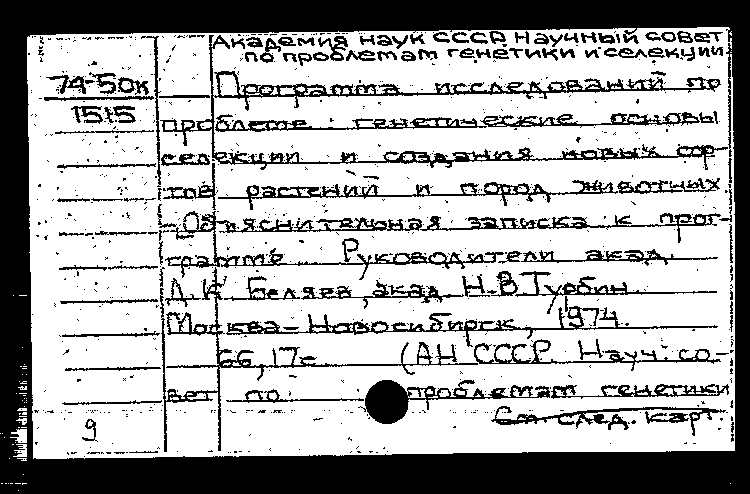 Академия наук СССР. Научный совет
по проблемам генетики и селекции
74-50к
1515
Программа исследований по
проблеме: генетические основы
селекции и создания новых сор-
тов растений и пород животных.
- Объяснительная записка к прог-
рамме. Руководители акад.
Д.К. Беляев, акад. Н.В. Турбин.
Москва-Новосибирск, 1974.
66,17с (АН СССР. Науч. со-
вет по проблемам генетики
См. след. карт.
9